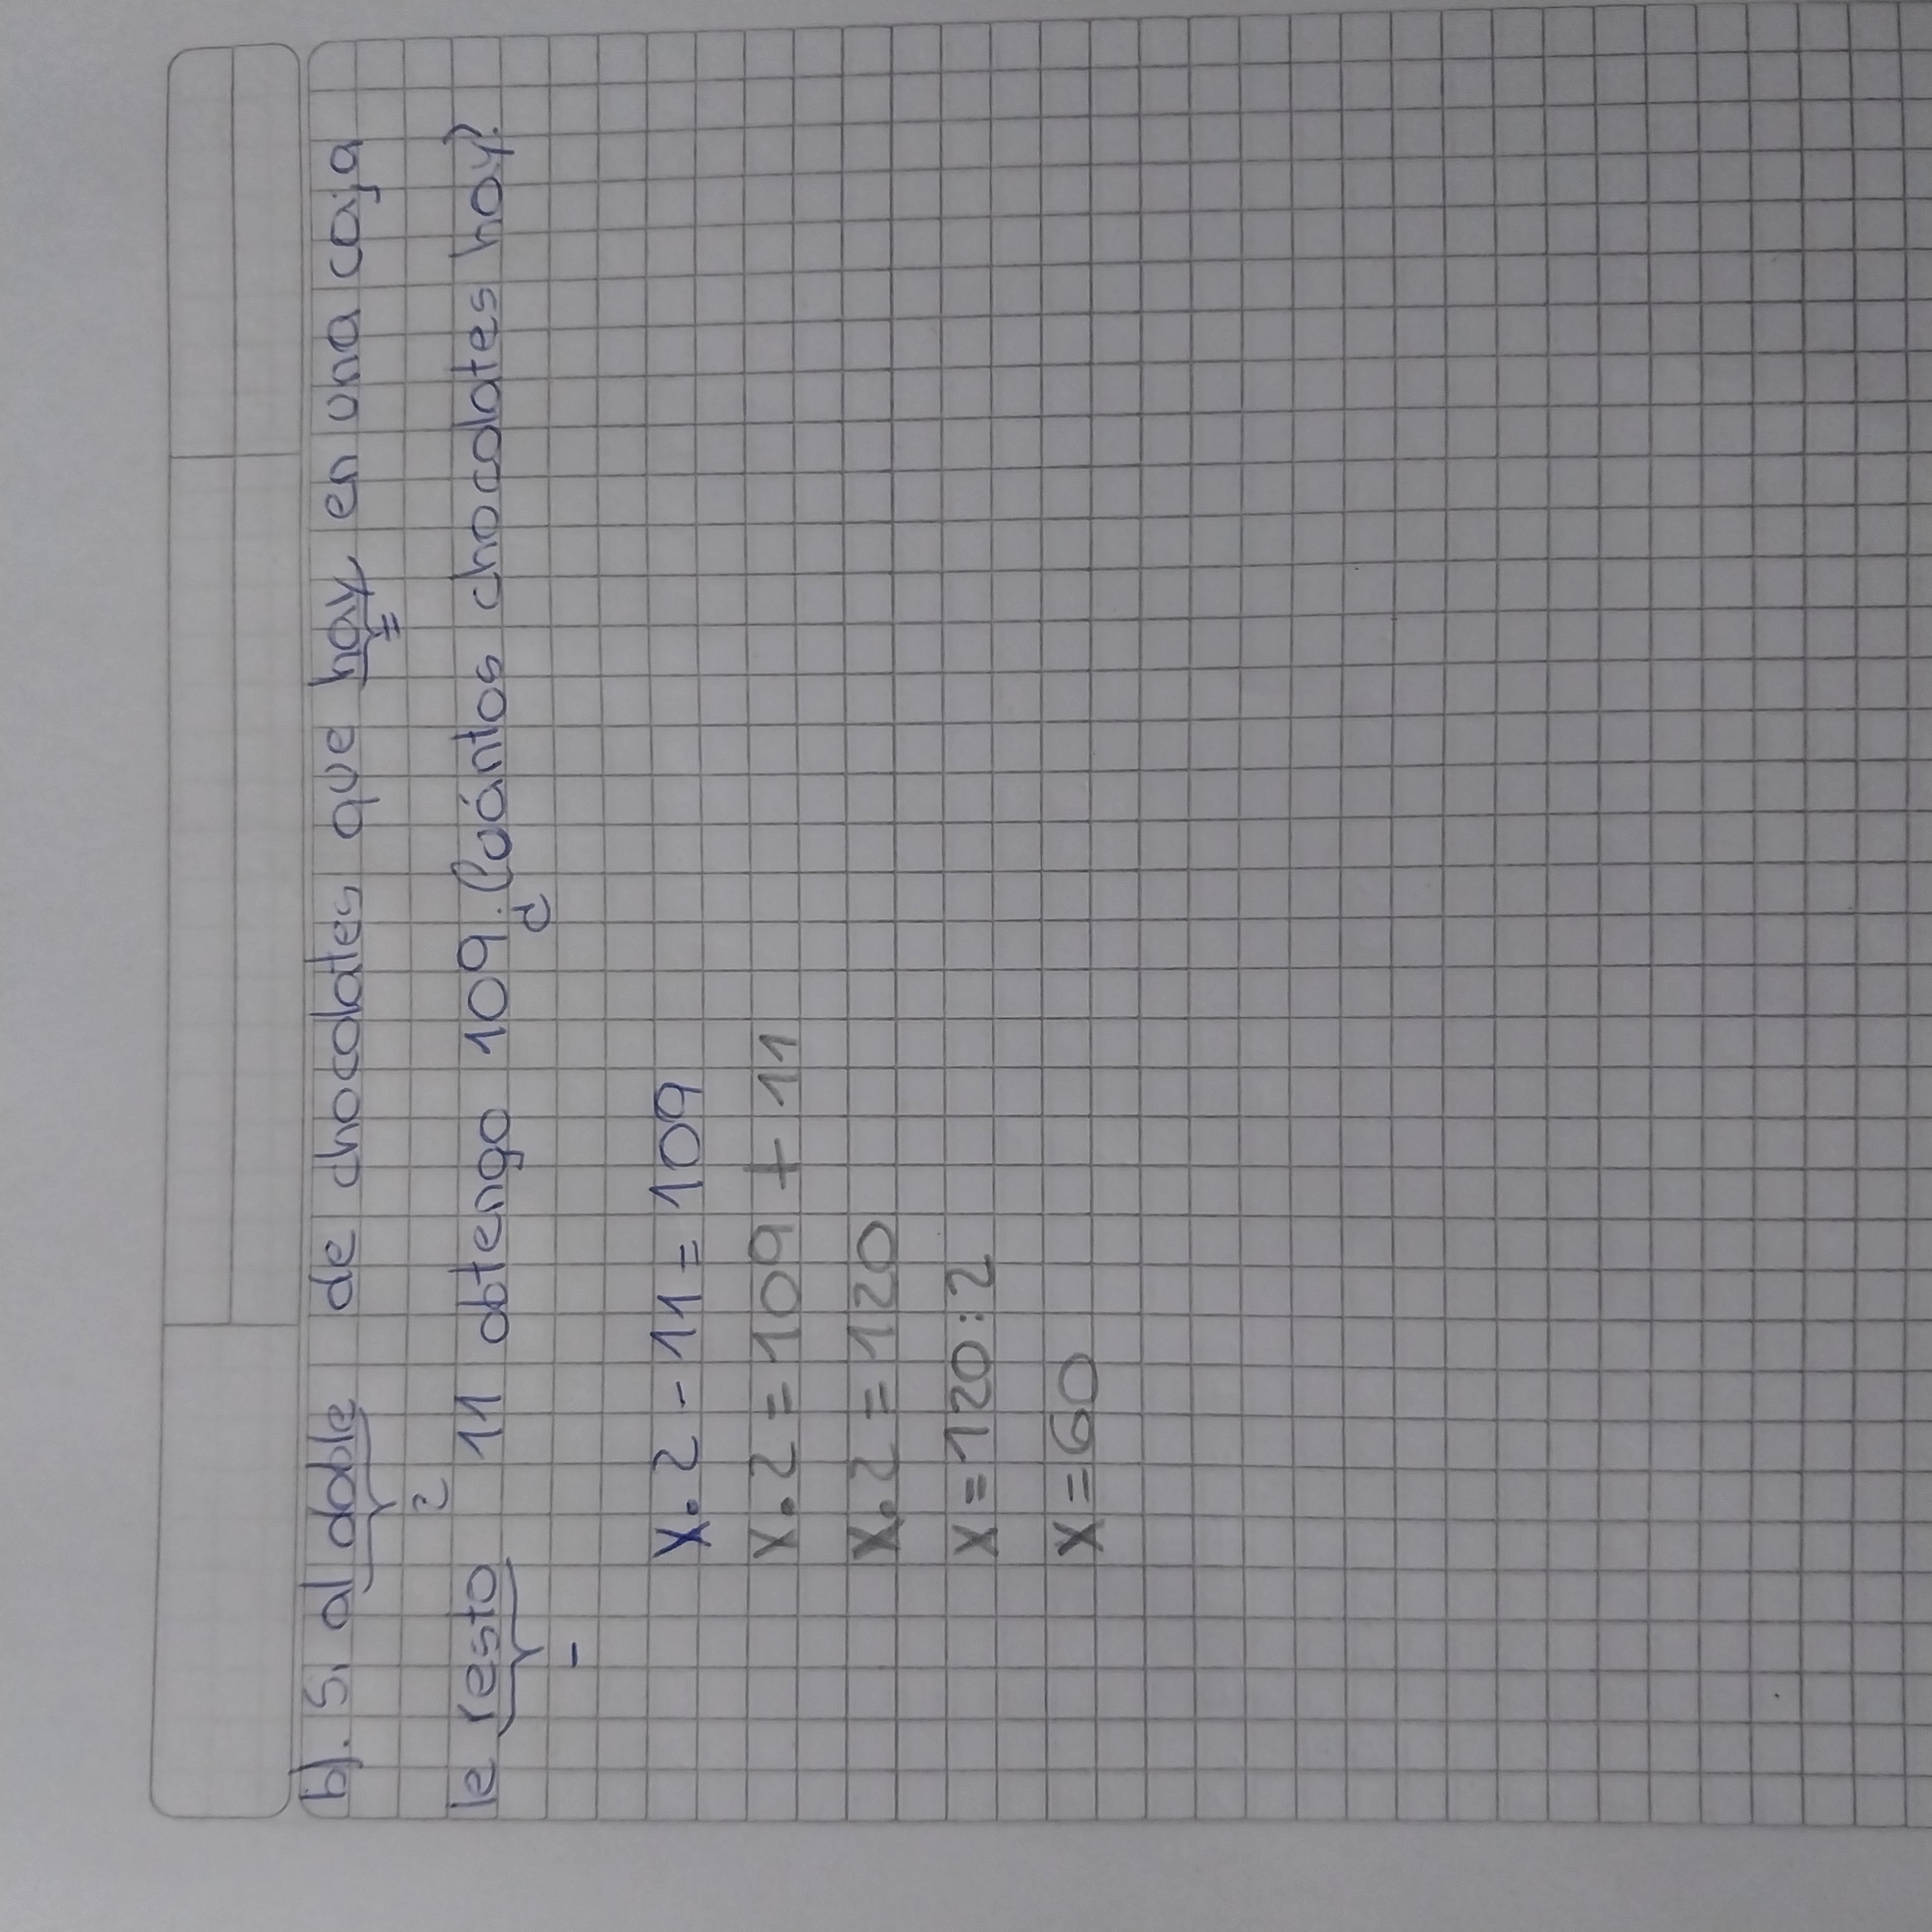 b). Si al doble de chocolates que hay en una caja
2 =
le resto 11 obtengo 109. ¿Cuántos chocolates hay?.
-
x.2-11=109
x.2=109+11
x.2=120
x=120:2
x=60